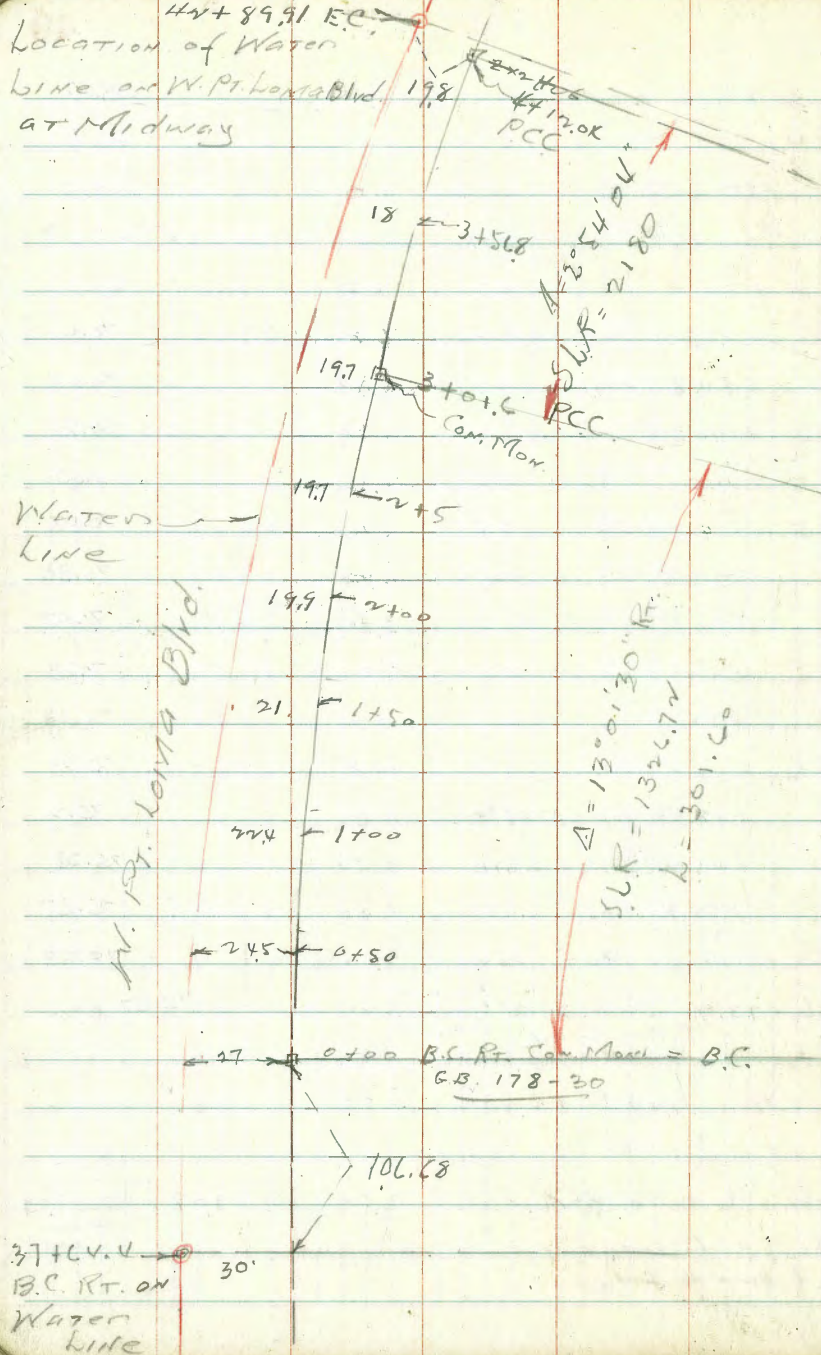 42+89.91 E.C.
Location of Water
Line on W. Pt. Loma Blvd.
at Midway
19.8
2x2 HUB
4+12.0K
PCC
18
3+56.8
Δ=2°54'04"
S.L.R = 2180
19.7
3+01.6
PCC
Con. Mon
19.7
2+5
Water
Line
19.9
2+00
W. Pt. Loma Blvd.
21.
1+50
Δ = 13°01'30" Rt.
S.L.R = 1326.72
L = 301.60
22.4
1+00
24.5
0+50
27
0+00 B.C. Rt. Con. Mon = B.C.
G.B. 178-30
106.68
30'
B.C. Rt. on
Water
Line